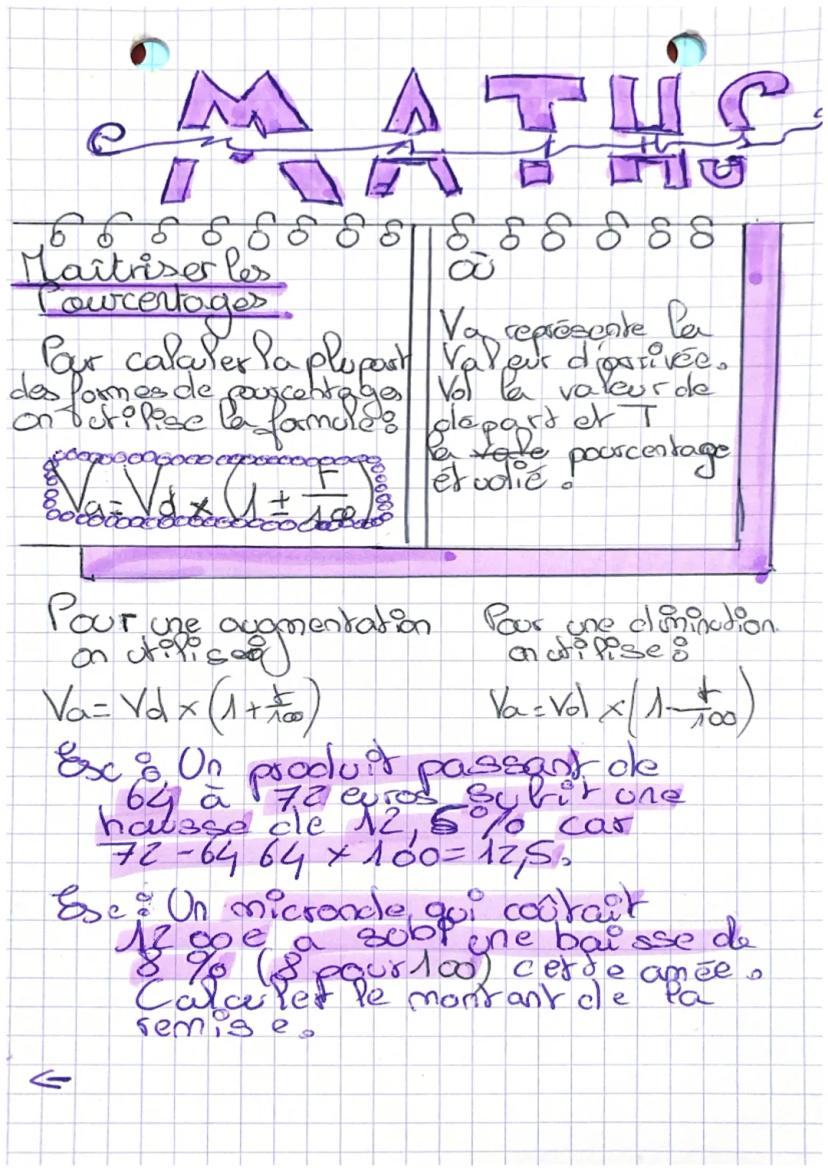 MATHS
Maîtriser les
Pourcentages
Pour calculer la plupart
des formes de pourcentages
on utilise la formule :
Va = Vd × (1 ± t/100)
où
Va représente la
Valeur d'arrivée.
Vd la valeur de
départ et T
la pourcentage
étudié.
Pour une augmentation
on utilise :
Va = Vd × (1 + t/100)
Pour une diminution
on utilise :
Va = Vd × (1 - t/100)
Exc : Un produit passant de
64 à 72 euros subit une
hausse de 12,5% car
72 - 64 64 × 100 = 12,5.
Exc : Un microonde qui coûtait
1200€ a subi une baisse de
8 % (8 pour 100) cette année.
Calculer le montant de la
remise.
←